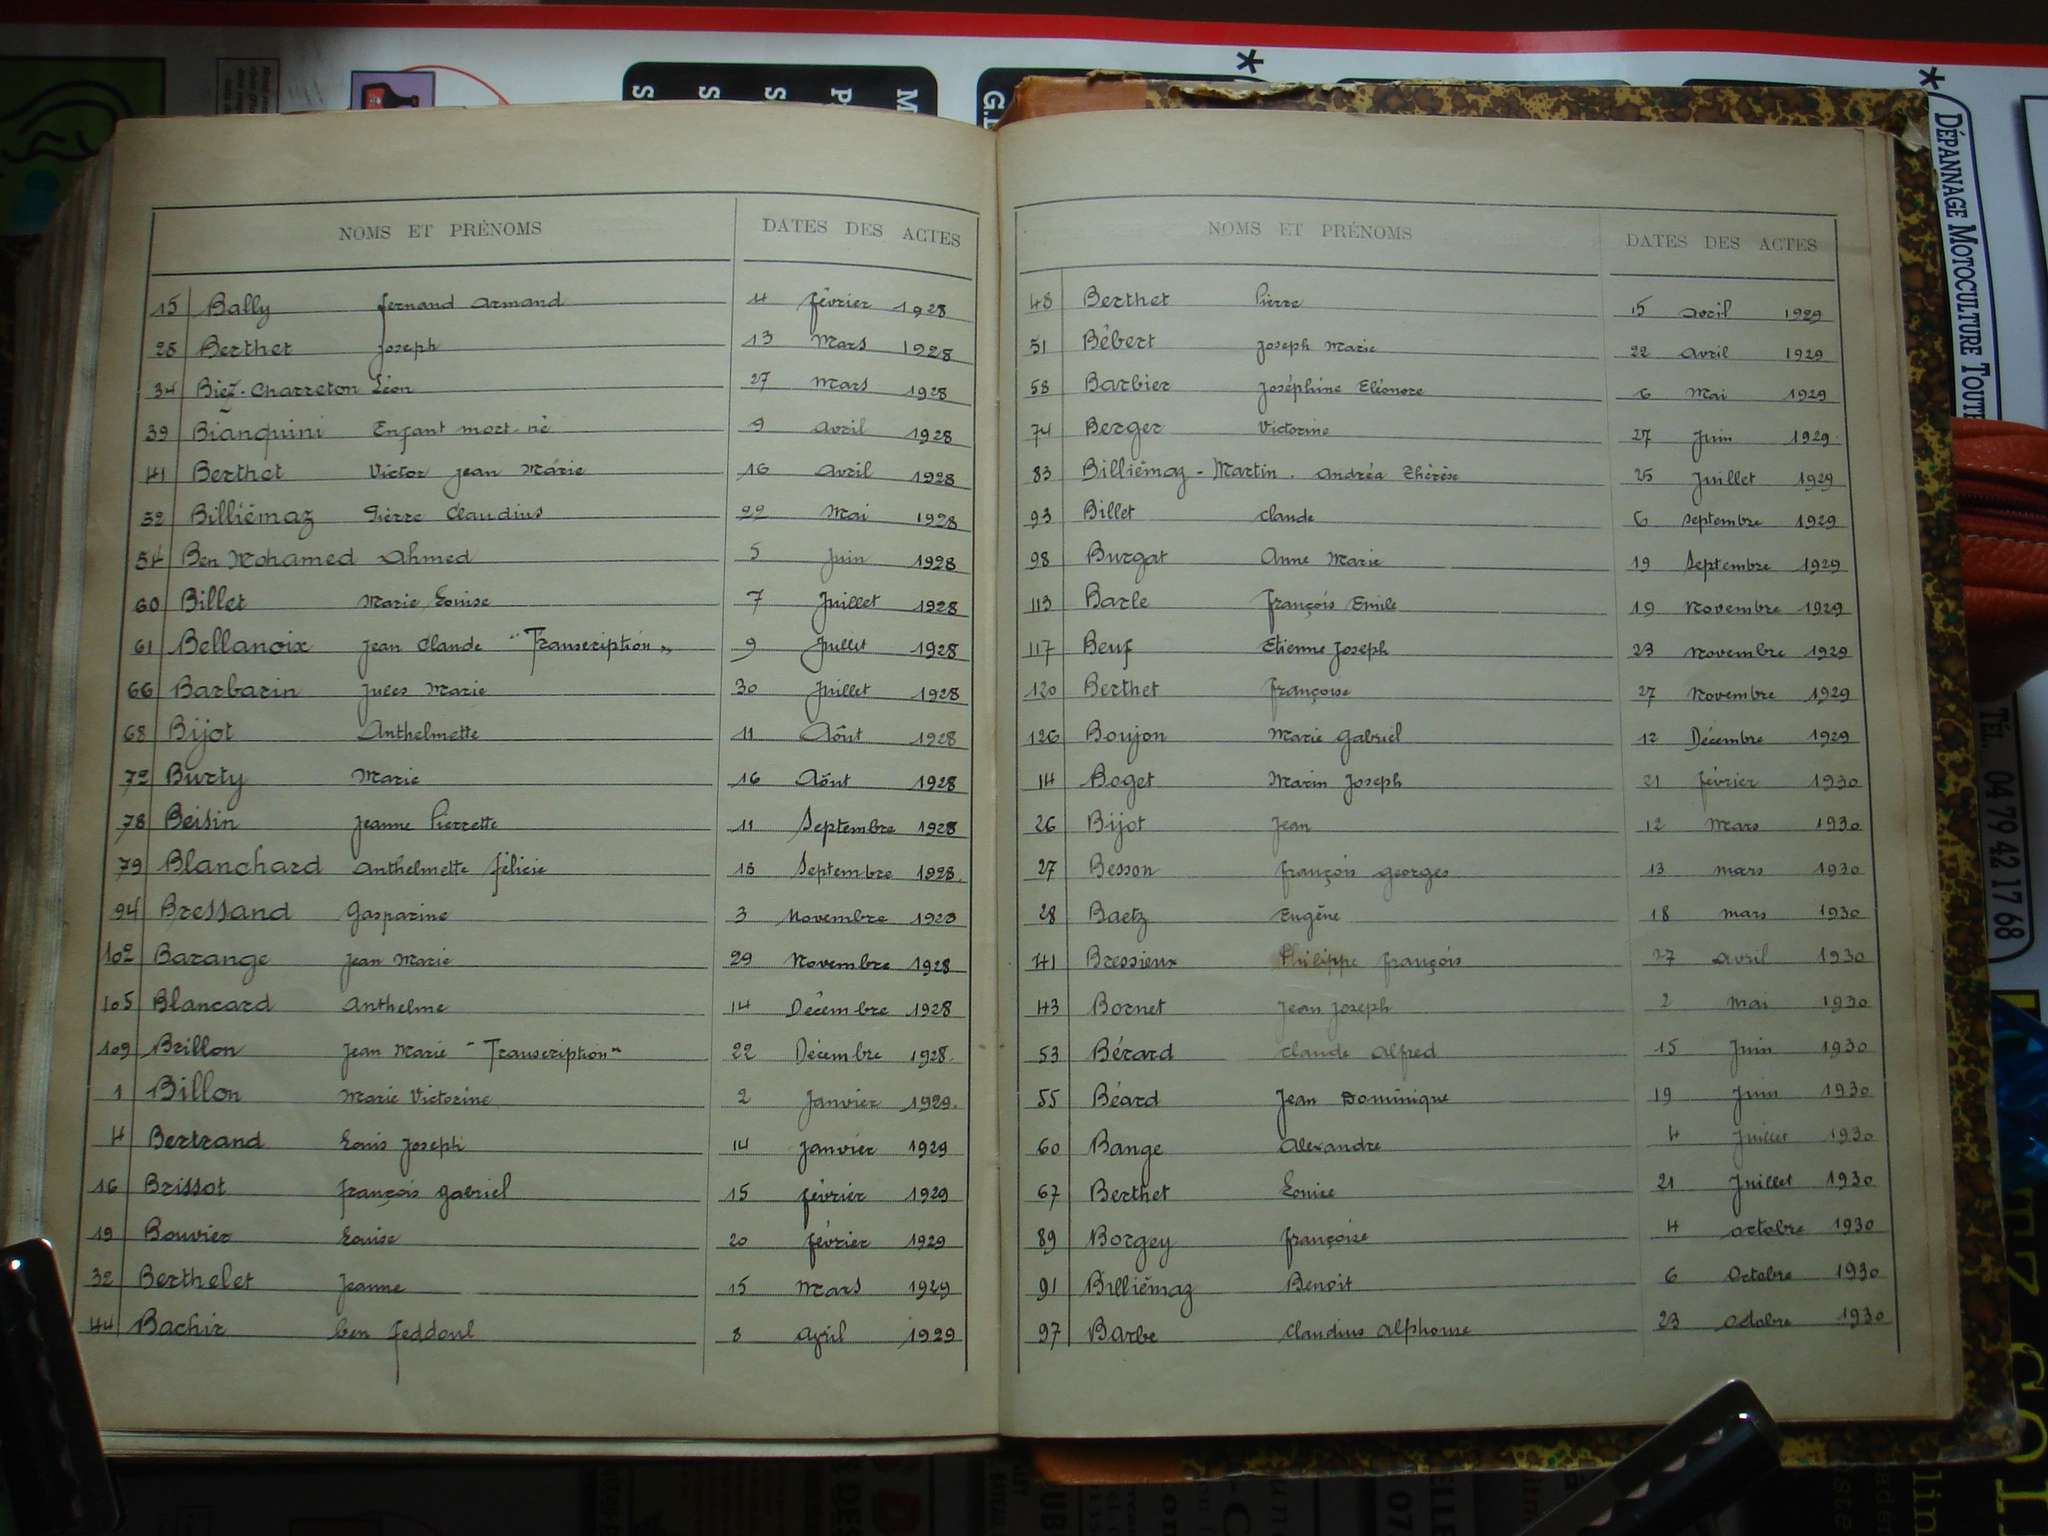 NOMS ET PRÉNOMS DATES DES ACTES
15 Bally fernand armand 4 février 1928
28 Berthet Joseph 13 Mars 1928
34 Biez-Charreton Léon 27 Mars 1928
39 Bianquini Enfant mort-né 9 avril 1928
41 Berthet Victor Jean Marie 16 avril 1928
52 Billiémaz Pierre Claudius 22 Mai 1928
54 Ben Mohamed Ahmed 5 Juin 1928
60 Billet Marie Louise 7 Juillet 1928
61 Bellanoix Jean Claude "Transcription" 9 Juillet 1928
66 Barbarin Jules Marie 30 Juillet 1928
68 Bijot Anthelmette 11 Aôut 1928
72 Burty Marie 16 Aôut 1928
78 Beisin Jeanne Pierrette 11 Septembre 1928
79 Blanchard Anthelmette félicie 18 Septembre 1928.
94 Bressand Gasparine 3 Novembre 1928
102 Barange Jean Marie 29 Novembre 1928
105 Blancard Anthelme 14 Décembre 1928
109 Brillon Jean Marie "Transcription" 22 Décembre 1928.
1 Billon Marie Victorine 2 Janvier 1929.
4 Bertrand Louis Joseph 14 Janvier 1929
16 Brissot françois gabriel 15 février 1929
19 Bouvier Louise 20 février 1929
32 Berthelet Jeanne 15 Mars 1929
44 Bachir ben feddoul 8 avril 1929
NOMS ET PRÉNOMS DATES DES ACTES
48 Berthet Pierre 15 avril 1929
51 Bébert Joseph Marie 22 avril 1929
58 Barbier Joséphine Eléonore 6 Mai 1929
74 Berger Victorine 27 Juin 1929.
83 Billiémaz-Martin. Andréa Thérèse 25 Juillet 1929
93 Billet Claude 6 Septembre 1929
98 Burgat Anne Marie 19 Septembre 1929
113 Barle françois Emile 19 Novembre 1929
117 Beuf Etienne Joseph 23 Novembre 1929
120 Berthet françoise 27 Novembre 1929
126 Boujon Marie gabriel 12 Décembre 1929
14 Boget Marin Joseph 21 février 1930
26 Bijot Jean 12 Mars 1930
27 Besson françois georges 13 mars 1930
28 Baetz Eugène 18 mars 1930
41 Bressieux Philippe françois 27 avril 1930
43 Bornet Jean Joseph 2 Mai 1930
53 Bérard Claude Alfred 15 Juin 1930
55 Béard Jean Dominique 19 Juin 1930
60 Bange Alexandre 4 Juillet 1930
67 Berthet Louise 21 Juillet 1930
89 Borgey françoise 4 octobre 1930
91 Billiémaz Benoit 6 Octobre 1930
97 Barbe Claudius Alphonse 23 octobre 1930
DÉPANNAGE MOTOCULTURE TOUT
TÉL. 04 79 42 17 68